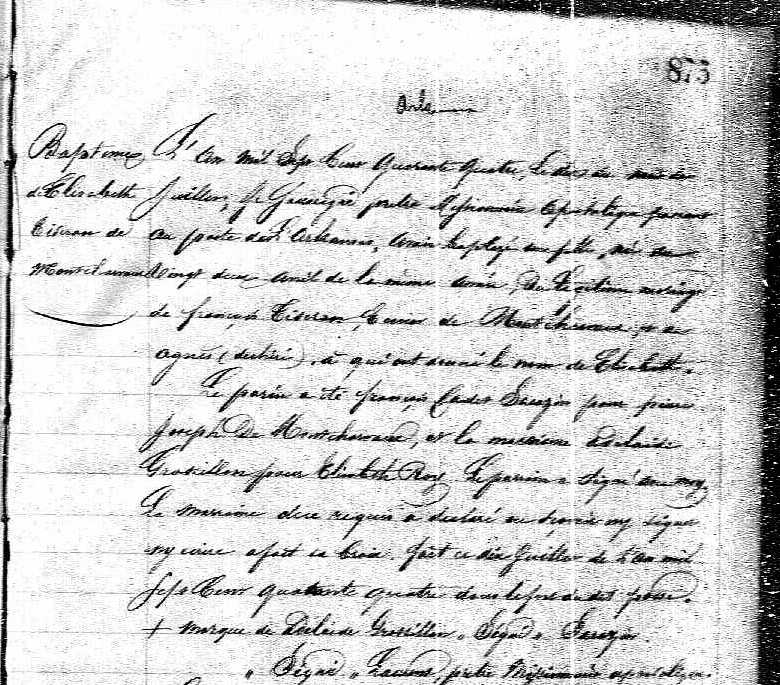 873
Arks
Baptême
d'Elisabeth
Tisseran de
Montcharvaux
L'An Mil Sept Cent Quarante Quatre, le dix du mois de
Juillet, je soussigné prêtre Missionnaire Apostolique passant
au poste des Arkansas, avoir baptizé une fille, née du
vingt deux Avril de la même Année, du Légitime mariage
de françois Tisseran, Sieur de Montcharvaux, et de
agnès (déchiré), à qui ont donné le nom de Elisabeth.
Le parin a été françois Cadet Sarazin pour frère
Joseph De Montcharvaux, et la marraine Adelaide
Grosillon pour Elisabeth Roy. Le parrain a signé avec moy
La marraine de ce requis a déclaré ne savoir ny signer
ny ecrire a fait sa Croix, fait ce dix Juillet de L'an mil
Sept Cent Quarante quatre dans le fort de dit poste.
+ Marque de Delaide Grosillon " Signé " Sarazin.
" Signé " Laurent, prêtre Missionnaire apostolique.